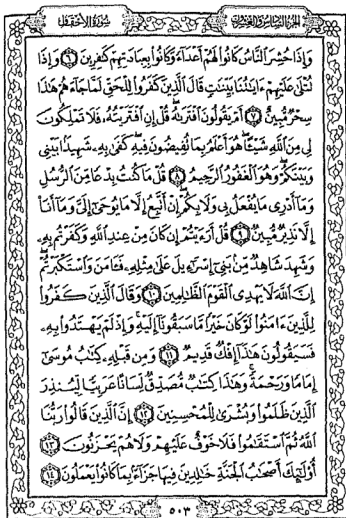 سُورَةُ الأَحْقَافِ الجُزْءُ السَّادِسُ وَالعِشْرُونَ
وَإِذَا حُشِرَ النَّاسُ كَانُوا لَهُمْ أَعْدَاءً وَكَانُوا بِعِبَادَتِهِمْ كَافِرِينَ ٦ وَإِذَا
تُتْلَى عَلَيْهِمْ ءَايَاتُنَا بَيِّنَاتٍ قَالَ الَّذِينَ كَفَرُوا لِلْحَقِّ لَمَّا جَاءَهُمْ هَذَا
سِحْرٌ مُّبِينٌ ٧ أَمْ يَقُولُونَ افْتَرَاهُ قُلْ إِنِ افْتَرَيْتُهُ فَلَا تَمْلِكُونَ
لِي مِنَ اللَّهِ شَيْئًا هُوَ أَعْلَمُ بِمَا تُفِيضُونَ فِيهِ كَفَى بِهِ شَهِيدًا بَيْنِي
وَبَيْنَكُمْ وَهُوَ الْغَفُورُ الرَّحِيمُ ٨ قُلْ مَا كُنتُ بِدْعًا مِّنَ الرُّسُلِ
وَمَا أَدْرِي مَا يُفْعَلُ بِي وَلَا بِكُمْ إِنْ أَتَّبِعُ إِلَّا مَا يُوحَى إِلَيَّ وَمَا أَنَا
إِلَّا نَذِيرٌ مُّبِينٌ ٩ قُلْ أَرَءَيْتُمْ إِن كَانَ مِنْ عِندِ اللَّهِ وَكَفَرْتُم بِهِ
وَشَهِدَ شَاهِدٌ مِّن بَنِي إِسْرَاءِيلَ عَلَى مِثْلِهِ فَـَٔامَنَ وَاسْتَكْبَرْتُمْ
إِنَّ اللَّهَ لَا يَهْدِي الْقَوْمَ الظَّالِمِينَ ١٠ وَقَالَ الَّذِينَ كَفَرُوا
لِلَّذِينَ ءَامَنُوا لَوْ كَانَ خَيْرًا مَّا سَبَقُونَا إِلَيْهِ وَإِذْ لَمْ يَهْتَدُوا بِهِ
فَسَيَقُولُونَ هَذَا إِفْكٌ قَدِيمٌ ١١ وَمِن قَبْلِهِ كِتَابُ مُوسَى
إِمَامًا وَرَحْمَةً وَهَذَا كِتَابٌ مُّصَدِّقٌ لِّسَانًا عَرَبِيًّا لِّيُنذِرَ
الَّذِينَ ظَلَمُوا وَبُشْرَى لِلْمُحْسِنِينَ ١٢ إِنَّ الَّذِينَ قَالُوا رَبُّنَا
اللَّهُ ثُمَّ اسْتَقَامُوا فَلَا خَوْفٌ عَلَيْهِمْ وَلَا هُمْ يَحْزَنُونَ ١٣
أُولَئِكَ أَصْحَابُ الْجَنَّةِ خَالِدِينَ فِيهَا جَزَاءً بِمَا كَانُوا يَعْمَلُونَ ١٤
٥٠٣